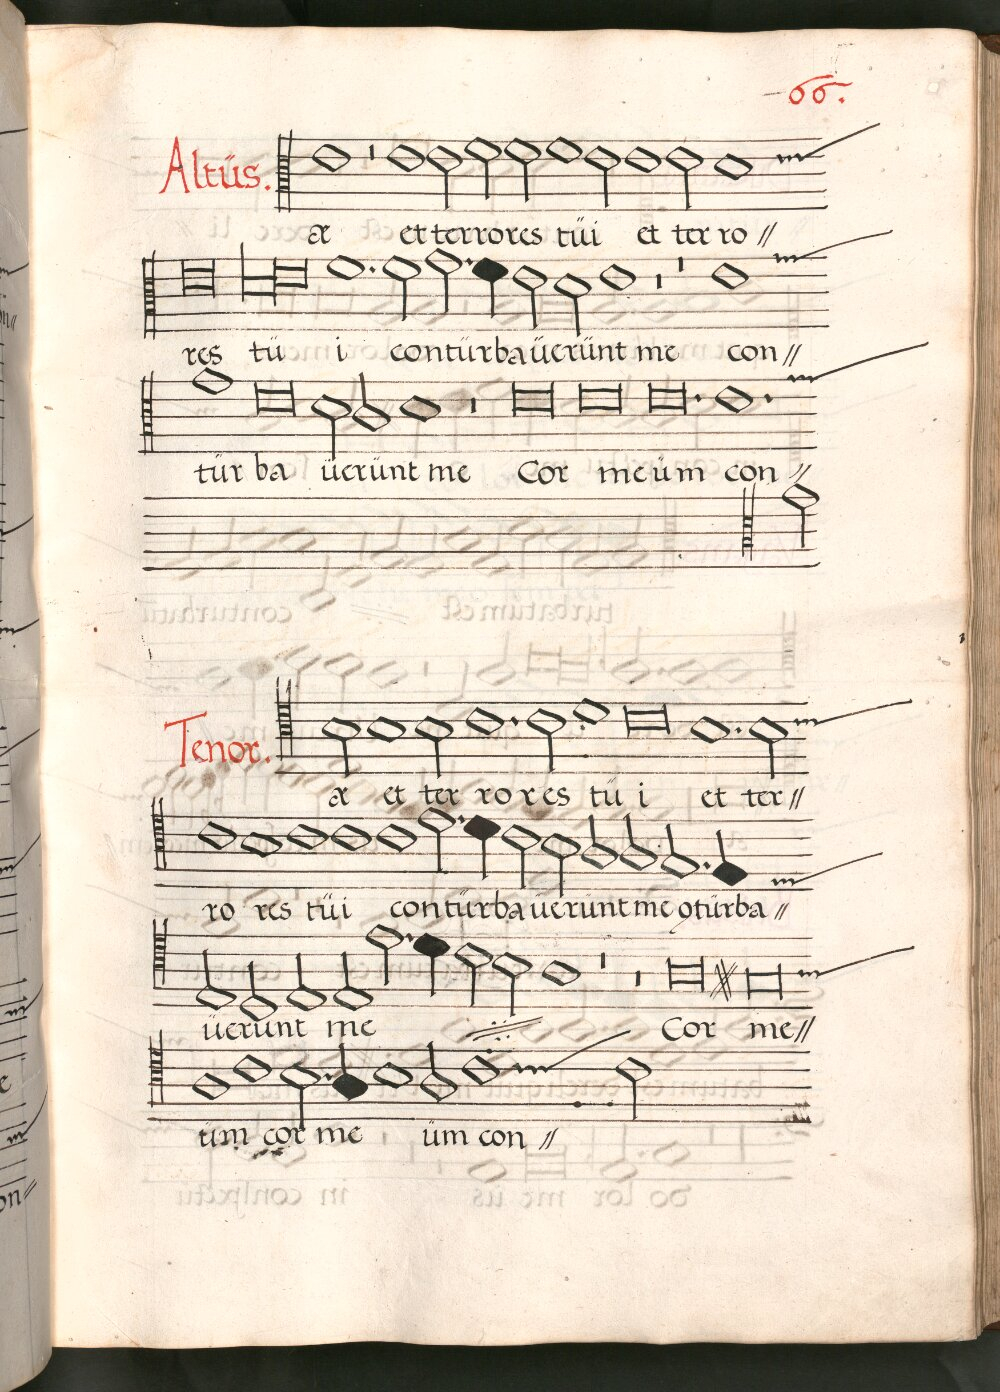 66.
Altüs.
æ et terrores tüi et ter ro //
res tü i contürbaüerünt me con //
tür ba üerünt me Cor me ü m con //
Tenor.
æ et ter ro r es tü i et ter //
ro res tüi contürbaüerunt me otürba //
üerunt me Cor me //
üm cor me üm con //